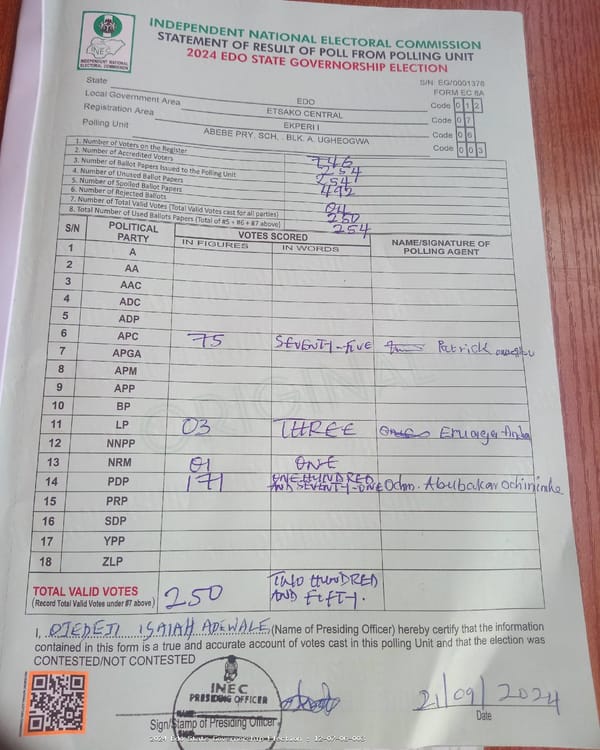 INEC
INDEPENDENT NATIONAL ELECTORAL COMMISSION
INDEPENDENT NATIONAL ELECTORAL COMMISSION
STATEMENT OF RESULT OF POLL FROM POLLING UNIT
2024 EDO STATE GOVERNORSHIP ELECTION
S/N: EG/0001378
FORM EC 8A
State EDO Code 0 1 2
Local Government Area ETSAKO CENTRAL Code 0 7
Registration Area EKPERI I Code 0 6
Polling Unit ABEBE PRY. SCH. . BLK. A. UGHEOGWA Code 0 0 3
1. Number of Voters on the Register 746
2. Number of Accredited Voters 254
3. Number of Ballot Papers Issued to the Polling Unit
4. Number of Unused Ballot Papers 492
5. Number of Spoiled Ballot Papers
6. Number of Rejected Ballots 04
7. Number of Total Valid Votes (Total Valid Votes cast for all parties) 250
8. Total Number of Used Ballots Papers (Total of #5 + #6 + #7 above) 254
S/N POLITICAL PARTY VOTES SCORED NAME/SIGNATURE OF POLLING AGENT
IN FIGURES IN WORDS
1 A
2 AA
3 AAC
4 ADC
5 ADP
6 APC 75 SEVENTY-FIVE Patrick
7 APGA
8 APM
9 APP
10 BP
11 LP 03 THREE
12 NNPP
13 NRM 01 ONE
14 PDP 171 ONE HUNDRED AND SEVENTY-ONE Abubakar
15 PRP
16 SDP
17 YPP
18 ZLP
ORIGINAL
TOTAL VALID VOTES 250 TWO HUNDRED AND FIFTY.
(Record Total Valid Votes under #7 above)
I, OJEDEJI ISAIAH ADEWALE (Name of Presiding Officer) hereby certify that the information
contained in this form is a true and accurate account of votes cast in this polling Unit and that the election was
CONTESTED/NOT CONTESTED
INEC
PRESIDING OFFICER
21/09/2024
Sign/Stamp of Presiding Officer Date
2024 Edo State Governorship Election - 12-07-06-003